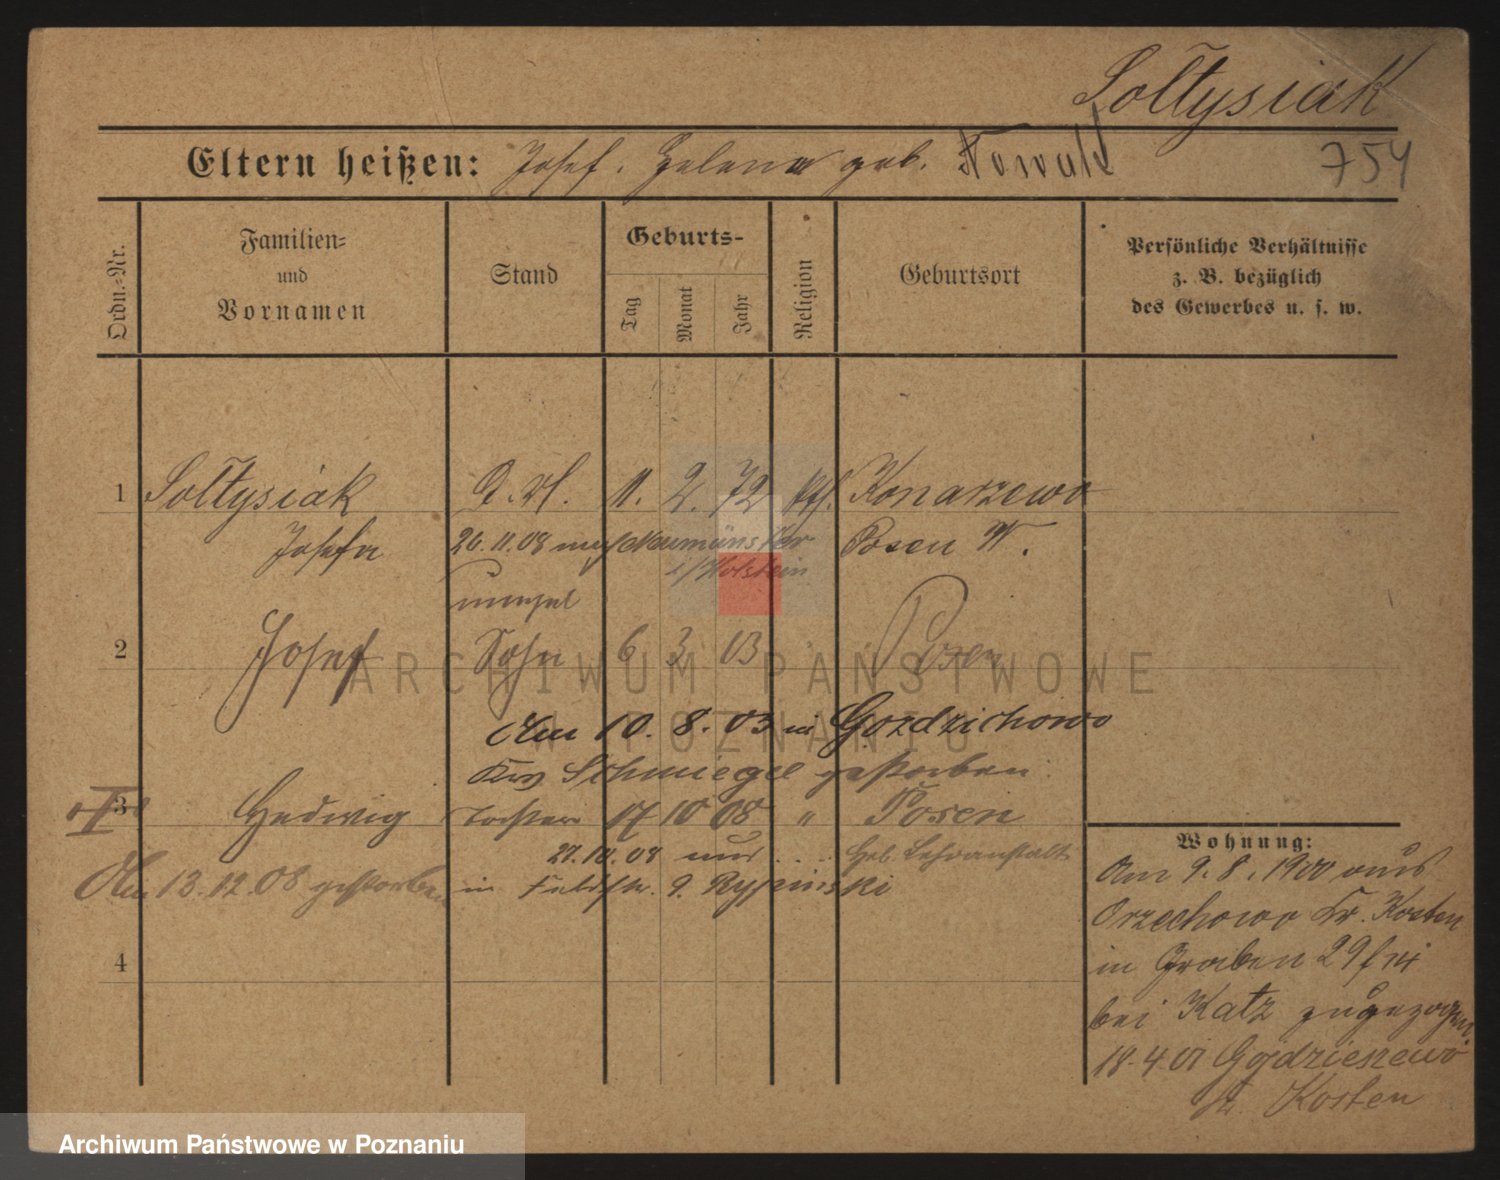 Sołtysiak
Eltern heißen: Josef. Helena geb. Nowak
754
Ordn.-Nr.
Familien-
und
Vornamen
Stand
Geburts-
Tag
Monat
Jahr
Religion
Geburtsort
Persönliche Verhältnisse
z. B. bezüglich
des Gewerbes u. s. w.
1 Sołtysiak 11. 2. 72 Konarzewo
Josefa 26.11.08 Neumünster Posen W.
i/Holstein
2 Josef Sohn 6 3. 03 Posen
Am 10. 8. 03 in Gozdzichowo
Krs Schmiegel gestorben
3 Hedwig Tochter 17 10 08 " Posen
27.10.08 aus Heb. Lehranstalt
Am 13.12.08 gestorben in Feldstr. 9. Rypinski
4
Wohnung:
Am 9. 8. 1900 aus
Orzechowo Kr. Kosten
in Graben 29
bei Katz zugezogen
18.4.01
Kosten
ARCHIWUM PAŃSTWOWE
W POZNANIU
Archiwum Państwowe w Poznaniu